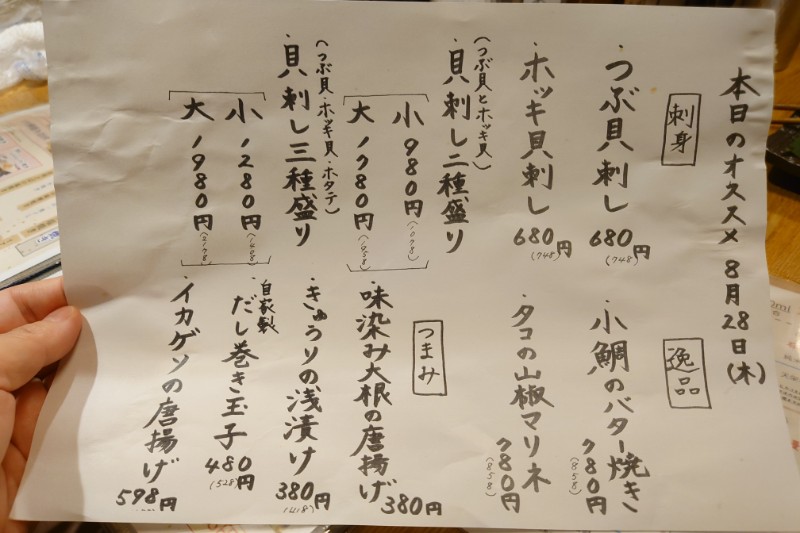 本日のオススメ 8月28日(木)
刺身
・つぶ貝刺し 680円
(748)
・ホッキ貝刺し 680円
(748)
・貝刺し二種盛り
(つぶ貝とホッキ貝)
小 980円
(1078)
大 1780円
(1958)
・貝刺し三種盛り
(つぶ貝・ホッキ貝・ホタテ)
小 1280円
(1408)
大 1980円
(2178)
逸品
・小鯛のバター焼き 780円
(858)
・タコの山椒マリネ 780円
(858)
つまみ
・味染み大根の唐揚げ 380円
・きゅうりの浅漬け 380円
(418)
・自家製
だし巻き玉子 480円
(528)
・イカゲソの唐揚げ 598円